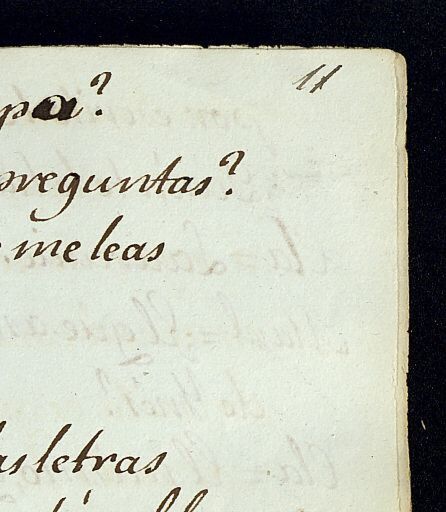 11
pa?
preguntas?
e me leas
as letras